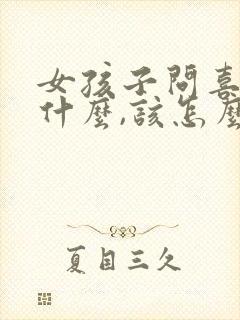 女孩子問喜
什麼,該怎麼
夏目三久